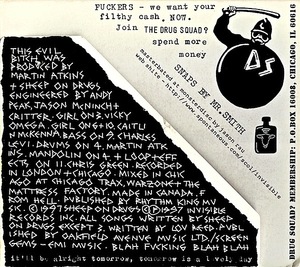 FUCKERS - we want your
filthy cash. NOW.
Join THE DRUG SQUAD?
spend more
money
SNAPS BY MR SMITH
masterbated at monsterdisc by jason rau
web shite: http://www.spontaneous.com/scot/invisible
DRUG SQUAD? MEMBERSHIP. P.O.BOX 16008, CHICAGO, IL 60616
THIS EVIL
BITCH WAS
PRODUCED BY
MARTIN ATKINS
+ SHEEP ON DRUGS.
ENGINEERED BY ANDY
PEAK, JASON McNINCH+
CRITTER. GIRL ON 3. VICKY
OMEGA. GIRL ON 6+10. CAITLI
N McKENNA. BASS ON 9. CHARLES
LEVI. DRUMS ON 4. MARTIN ATK
INS. MANDOLIN ON 4 + LOOP+EFF
ECTS ON 11. CHRIS GREEN. RECORDED
IN LONDON + CHICAGO. MIXED IN CHIC
AGO AT CHICAGO TRAX. WARZONE + THE
MATTRESS FACTORY. MADE IN CANADA. F
ROM HELL. PUBLISHED BY RHYTHM KING MU
SIC © 1997 SHEEP ON DRUGS ℗ 1997 INVISIBLE
RECORDS INC. ALL SONGS WRITTEN BY SHEEP
ON DRUGS EXCEPT 3. WRITTEN BY LOU REED. PUBL
ISHED BY OAKFIELD AVENUE MUSIC LTD/SCREEN
GEMS - EMI MUSIC. BLAH FUCKING BLAH BLAH
it'll be alright tomorrow, tomorrow is a lovely day